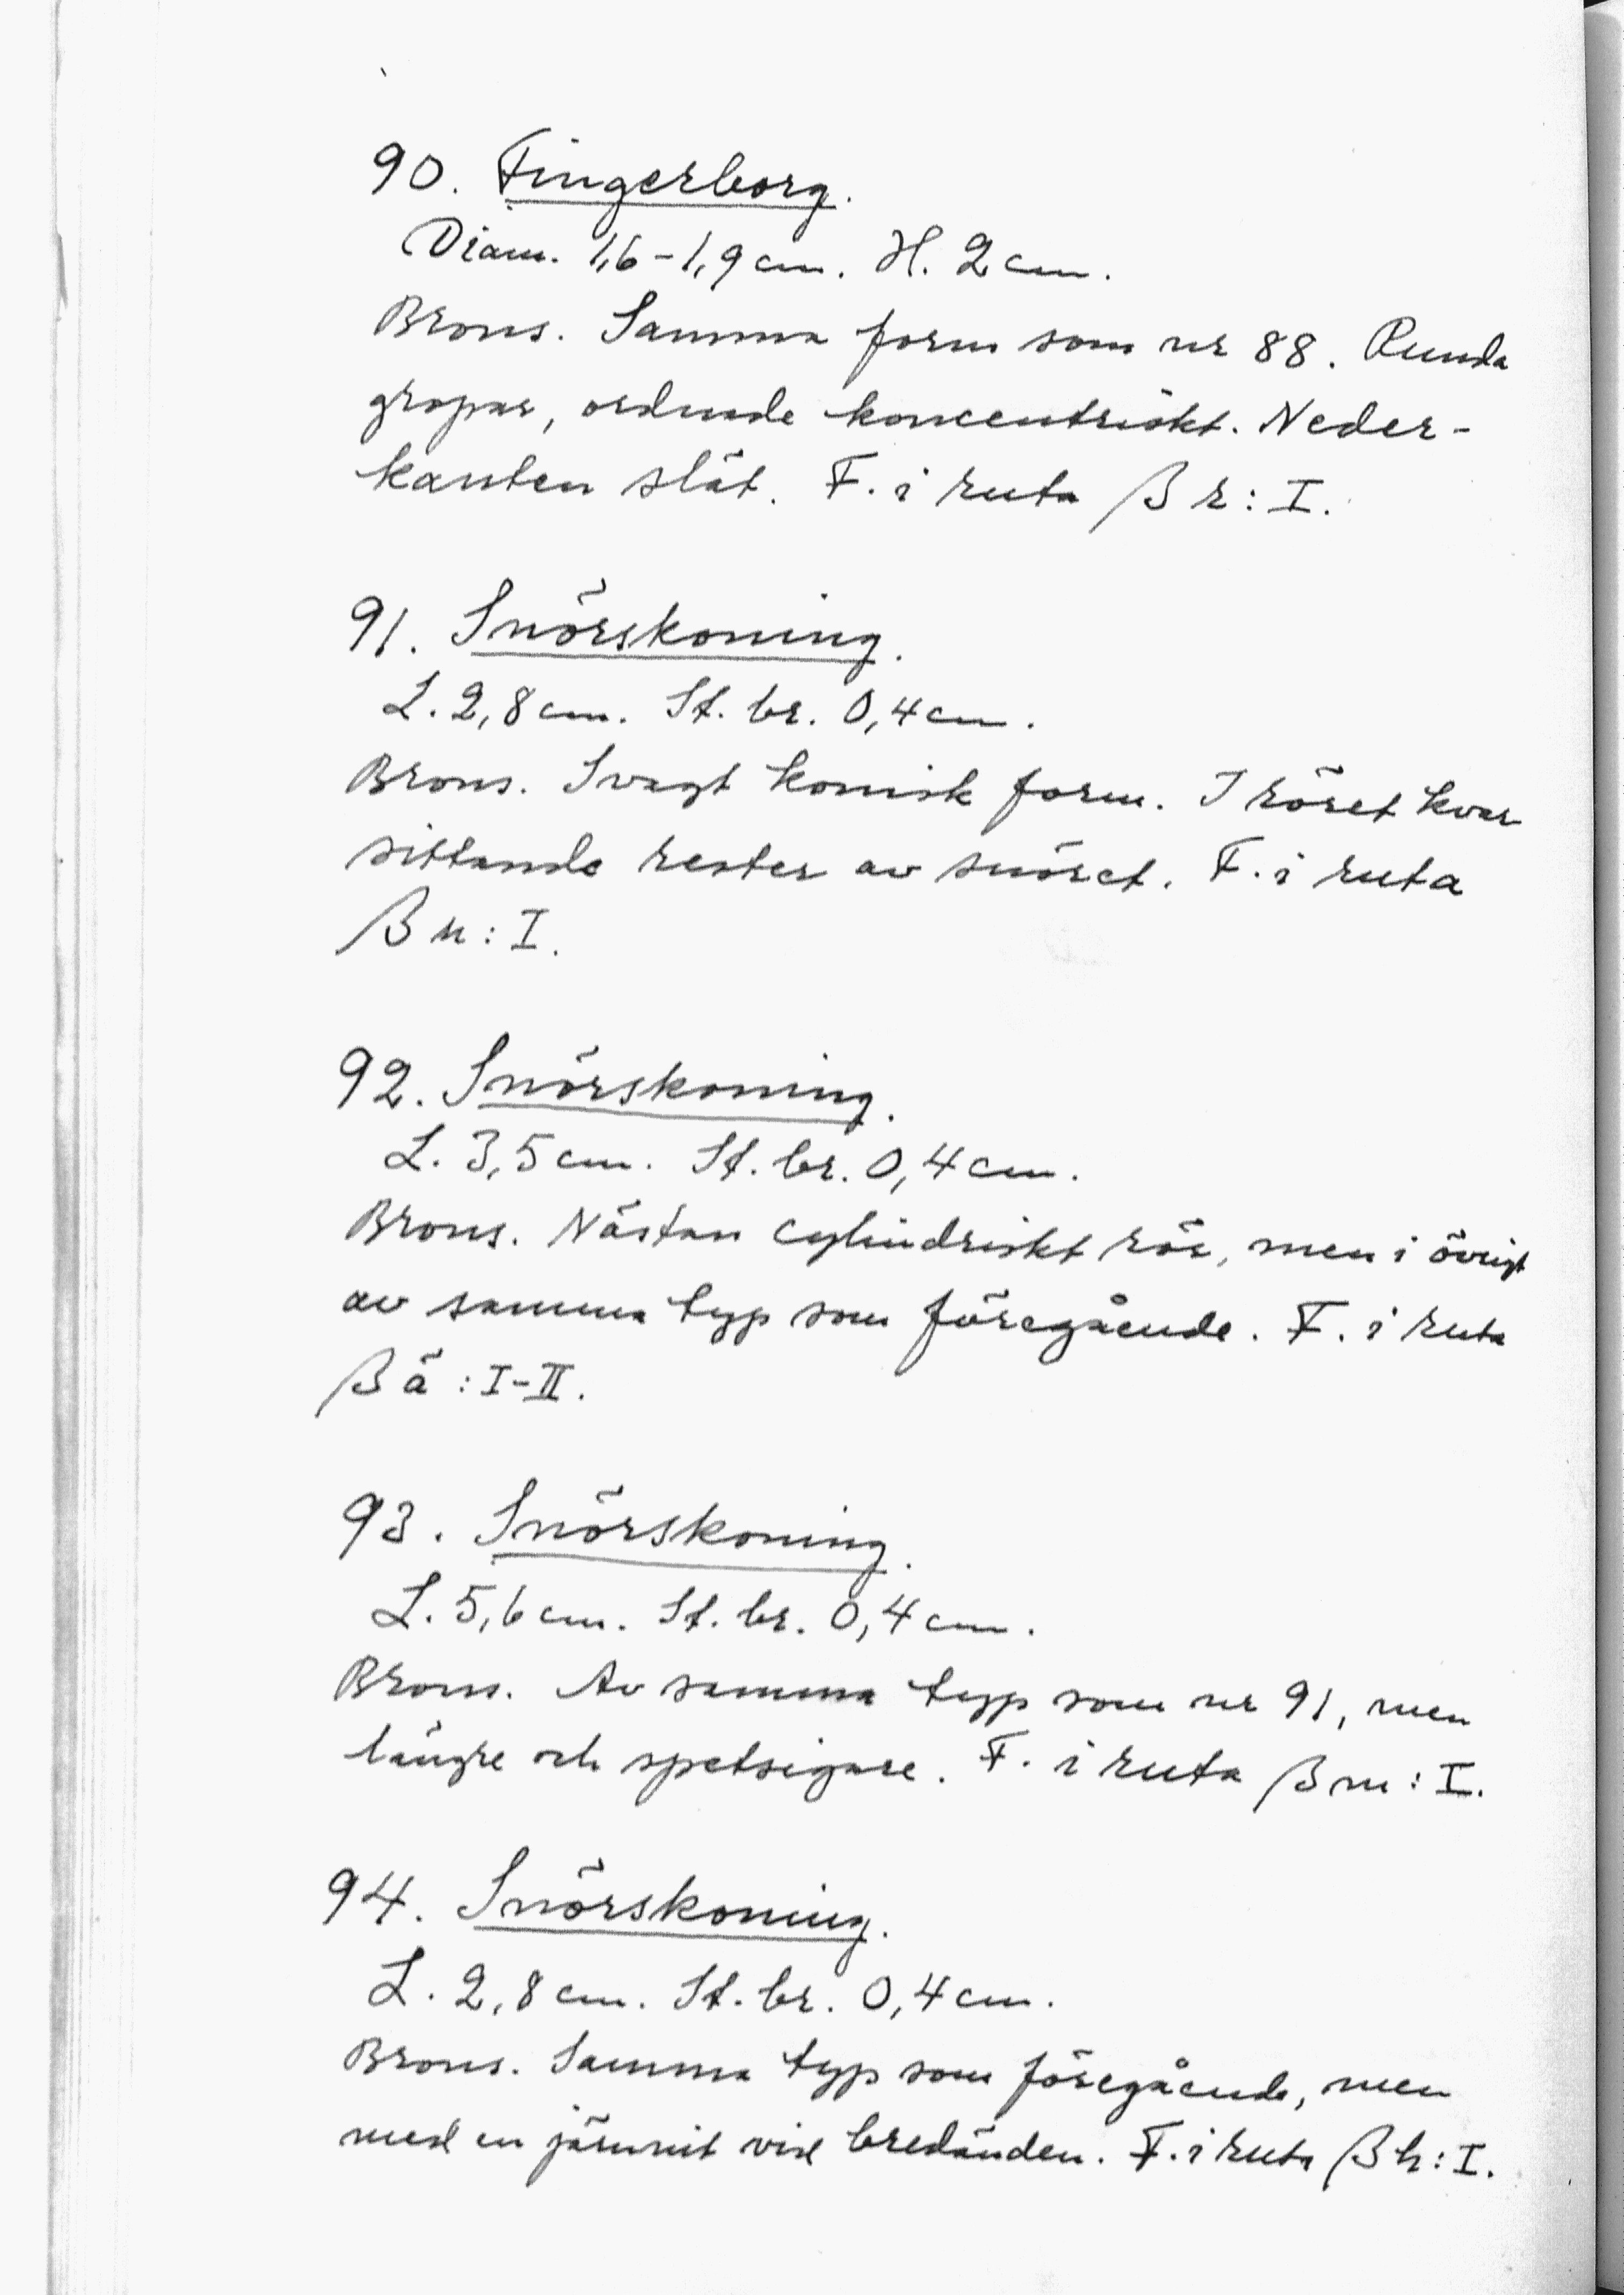 90. Fingerborg.
Diam. 1,6-1,9 cm. H. 2 cm.
Brons. Samma form som nr 88. Runda
gropar, ordnade koncentriskt. Neder-
kanten slät. F. i ruta β r: I.
91. Snörskoning.
L. 2,8 cm. St. br. 0,4 cm.
Brons. Svagt konisk form. I röret kvar
sittande rester av snöret. F. i ruta
β n: I.
92. Snörskoning.
L. 3,5 cm. St. br. 0,4 cm.
Brons. Nästan cylindriskt rör, men i övrigt
av samma typ som föregående. F. i ruta
β ä: I-II.
93. Snörskoning.
L. 5,6 cm. St. br. 0,4 cm.
Brons. Av samma typ som nr 91, men
längre och spetsigare. F. i ruta β m: I.
94. Snörskoning.
L. 2,8 cm. St. br. 0,4 cm.
Brons. Samma typ som föregående, men
med en järnnit vid bredänden. F. i ruta β h: I.